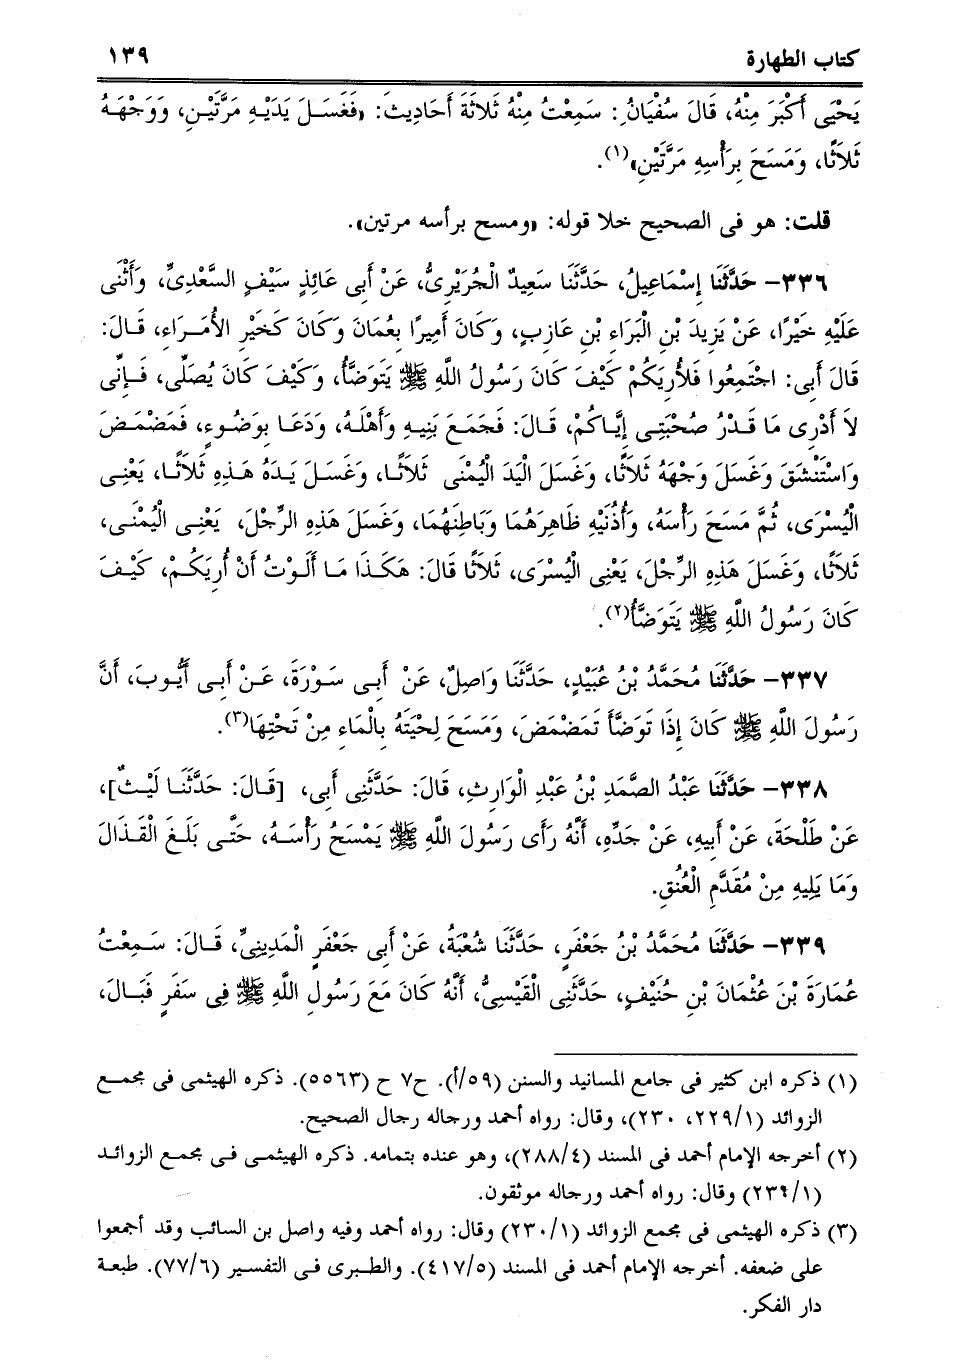 كتاب الطهارة ١٣٩
يَحْيَى أَكْبَرَ مِنْهُ، قَالَ سُفْيَانُ: سَمِعْتُ مِنْهُ ثَلاَثَةَ أَحَادِيثَ: «فَغَسَلَ يَدَيْهِ مَرَّتَيْنِ، وَوَجْهَهُ
ثَلاَثًا، وَمَسَحَ بِرَأْسِهِ مَرَّتَيْنِ»(١).
قلت: هو فى الصحيح خلا قوله: «ومسح برأسه مرتين».
٣٣٦- حَدَّثَنَا إِسْمَاعِيلُ، حَدَّثَنَا سَعِيدٌ الْجُرَيْرِىُّ، عَنْ أَبِى عَائِذٍ سَيْفٍ السَّعْدِىِّ، وَأَثْنَى
عَلَيْهِ خَيْرًا، عَنْ يَزِيدَ بْنِ الْبَرَاءِ بْنِ عَازِبٍ، وَكَانَ أَمِيرًا بِعُمَانَ وَكَانَ كَخَيْرِ الأُمَرَاءِ، قَالَ:
قَالَ أَبِى: اجْتَمِعُوا فَلأُرِيَكُمْ كَيْفَ كَانَ رَسُولُ اللَّهِ ﷺ يَتَوَضَّأُ، وَكَيْفَ كَانَ يُصَلِّى، فَإِنِّى
لاَ أَدْرِى مَا قَدْرُ صُحْبَتِى إِيَّاكُمْ، قَالَ: فَجَمَعَ بَنِيهِ وَأَهْلَهُ، وَدَعَا بِوَضُوءٍ، فَمَضْمَضَ
وَاسْتَنْشَقَ وَغَسَلَ وَجْهَهُ ثَلاَثًا، وَغَسَلَ الْيَدَ الْيُمْنَى ثَلاَثًا، وَغَسَلَ يَدَهُ هَذِهِ ثَلاَثًا، يَعْنِى
الْيُسْرَى، ثُمَّ مَسَحَ رَأْسَهُ، وَأُذُنَيْهِ ظَاهِرَهُمَا وَبَاطِنَهُمَا، وَغَسَلَ هَذِهِ الرِّجْلَ، يَعْنِى الْيُمْنَى،
ثَلاَثًا، وَغَسَلَ هَذِهِ الرِّجْلَ، يَعْنِى الْيُسْرَى، ثَلاَثًا قَالَ: هَكَذَا مَا أَلَوْتُ أَنْ أُرِيَكُمْ، كَيْفَ
كَانَ رَسُولُ اللَّهِ ﷺ يَتَوَضَّأُ(٢).
٣٣٧- حَدَّثَنَا مُحَمَّدُ بْنُ عُبَيْدٍ، حَدَّثَنَا وَاصِلٌ، عَنْ أَبِى سَوْرَةَ، عَنْ أَبِى أَيُّوبَ، أَنَّ
رَسُولَ اللَّهِ ﷺ كَانَ إِذَا تَوَضَّأَ تَمَضْمَضَ، وَمَسَحَ لِحْيَتَهُ بِالْمَاءِ مِنْ تَحْتِهَا(٣).
٣٣٨- حَدَّثَنَا عَبْدُ الصَّمَدِ بْنُ عَبْدِ الْوَارِثِ، قَالَ: حَدَّثَنِى أَبِى، [قَالَ: حَدَّثَنَا لَيْثٌ]،
عَنْ طَلْحَةَ، عَنْ أَبِيهِ، عَنْ جَدِّهِ، أَنَّهُ رَأَى رَسُولَ اللَّهِ ﷺ يَمْسَحُ رَأْسَهُ، حَتَّى بَلَغَ الْقَذَالَ
وَمَا يَلِيهِ مِنْ مُقَدَّمِ الْعُنُقِ.
٣٣٩- حَدَّثَنَا مُحَمَّدُ بْنُ جَعْفَرٍ، حَدَّثَنَا شُعْبَةُ، عَنْ أَبِى جَعْفَرٍ الْمَدِينِىِّ، قَالَ: سَمِعْتُ
عُمَارَةَ بْنَ عُثْمَانَ بْنِ حُنَيْفٍ، حَدَّثَنِى الْقَيْسِىُّ، أَنَّهُ كَانَ مَعَ رَسُولِ اللَّهِ ﷺ فِى سَفَرٍ فَبَالَ،
(١) ذكره ابن كثير فى جامع المسانيد والسنن (٥٩/أ). ح٧ ح (٥٥٦٣). ذكره الهيثمى فى مجمع
الزوائد (٢٢٩/١، ٢٣٠)، وقال: رواه أحمد ورجاله رجال الصحيح.
(٢) أخرجه الإمام أحمد فى المسند (٢٨٨/٤)، وهو عنده بتمامه. ذكره الهيثمى فى مجمع الزوائد
(٢٣٦/١) وقال: رواه أحمد ورجاله موثقون.
(٣) ذكره الهيثمى فى مجمع الزوائد (٢٣٠/١) وقال: رواه أحمد وفيه واصل بن السائب وقد أجمعوا
على ضعفه. أخرجه الإمام أحمد فى المسند (٤١٧/٥). والطبرى فى التفسير (٧٧/٦). طبعة
دار الفكر.